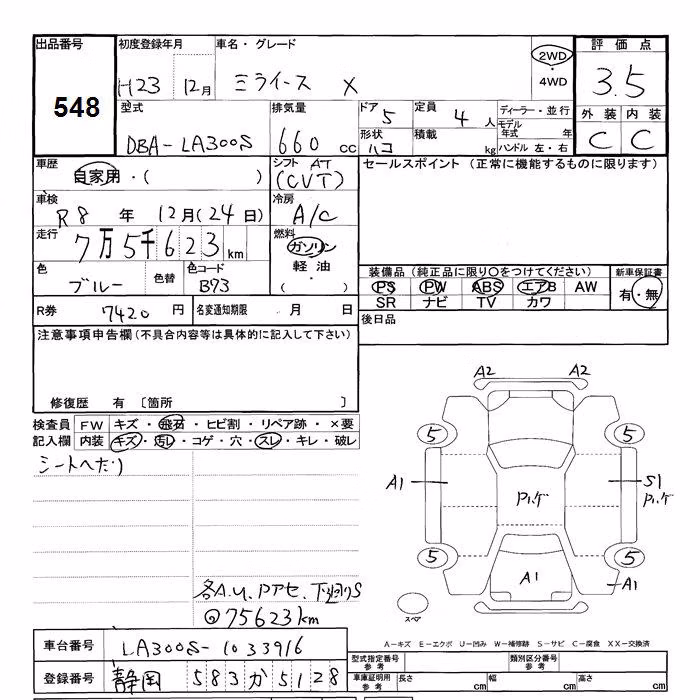 出品番号 初度登録年月 車名・グレード 評価点
548 H23 12月 ミライース X 2WD・4WD 3.5
型式 排気量 ドア 5 定員 4人 ディーラー・並行 外装 内装
DBA-LA300S 660cc 形状 ハコ 積載 kg モデル年式 年 ハンドル 左・右 C C
車歴 シフト AT セールスポイント (正常に機能するものに限ります)
自家用・( ) (CVT)
車検 冷房
R8年 12月(24日) A/C
走行 7万5千623km 燃料 ガソリン
色 色替 色コード 軽油 装備品(純正品に限り○をつけてください) 新車保証書
ブルー B73 ( ) PS PW ABS エアB AW 有・無
SR ナビ TV カワ
R券 7420円 名変通知期限 月 日 後日品
注意事項申告欄(不具合内容等は具体的に記入して下さい)
修復歴 有 〔箇所 〕
検査員 FW キズ・飛石・ヒビ割・リペア跡・×要
記入欄 内装 キズ・汚レ・コゲ・穴・スレ・キレ・破レ
シートヘタリ
A2 A2
5 5
A1 Pハゲ S1
Pハゲ
5 5
A1 A1
スペア
各A.U.Pアセ.下廻りS
◎75623km
A-キズ E-エクボ U-凹み W-補修跡 S-サビ C-腐食 XX-交換済
車台番号 LA300S-1033916 型式指定番号 参考 類別区分番号 参考
登録番号 静岡 583 か 5128 車庫証明用参考 長さ cm 幅 cm 高さ cm